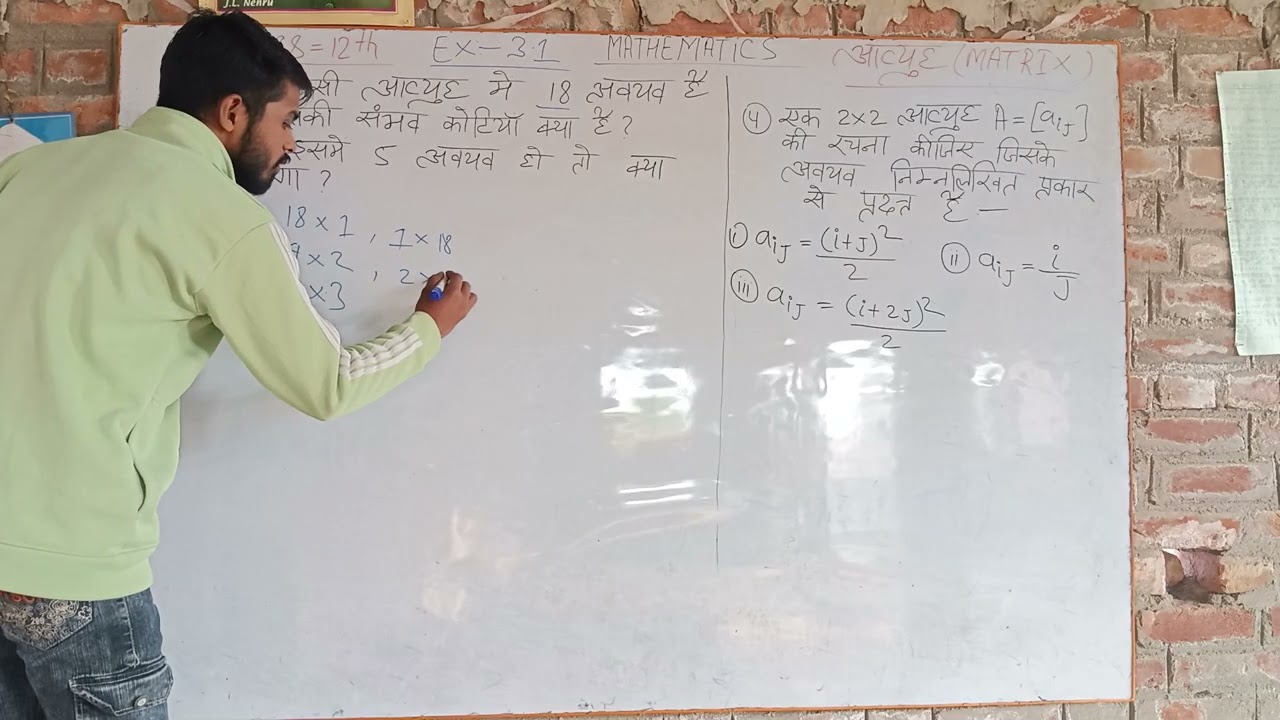 J.L. Nehru
38 = 12th EX-3.1 MATHEMATICS आव्यूह (MATRIX)
सी आव्यूह मे 18 अवयव है
की संभव कोटियाँ क्या है ?
इसमे 5 अवयव हो तो क्या
गा ?
18 × 1 , 1 × 18
9 × 2 , 2 ×
× 3
④ एक 2×2 आव्यूह A = [aiJ]
की रचना कीजिए जिसके
अवयव निम्नलिखित प्रकार
से प्रदत्त है —
ⅰ) aiJ = (i+J)²/2 ⅱ) aiJ = i/J
ⅲ) aiJ = (i+2J)²/2